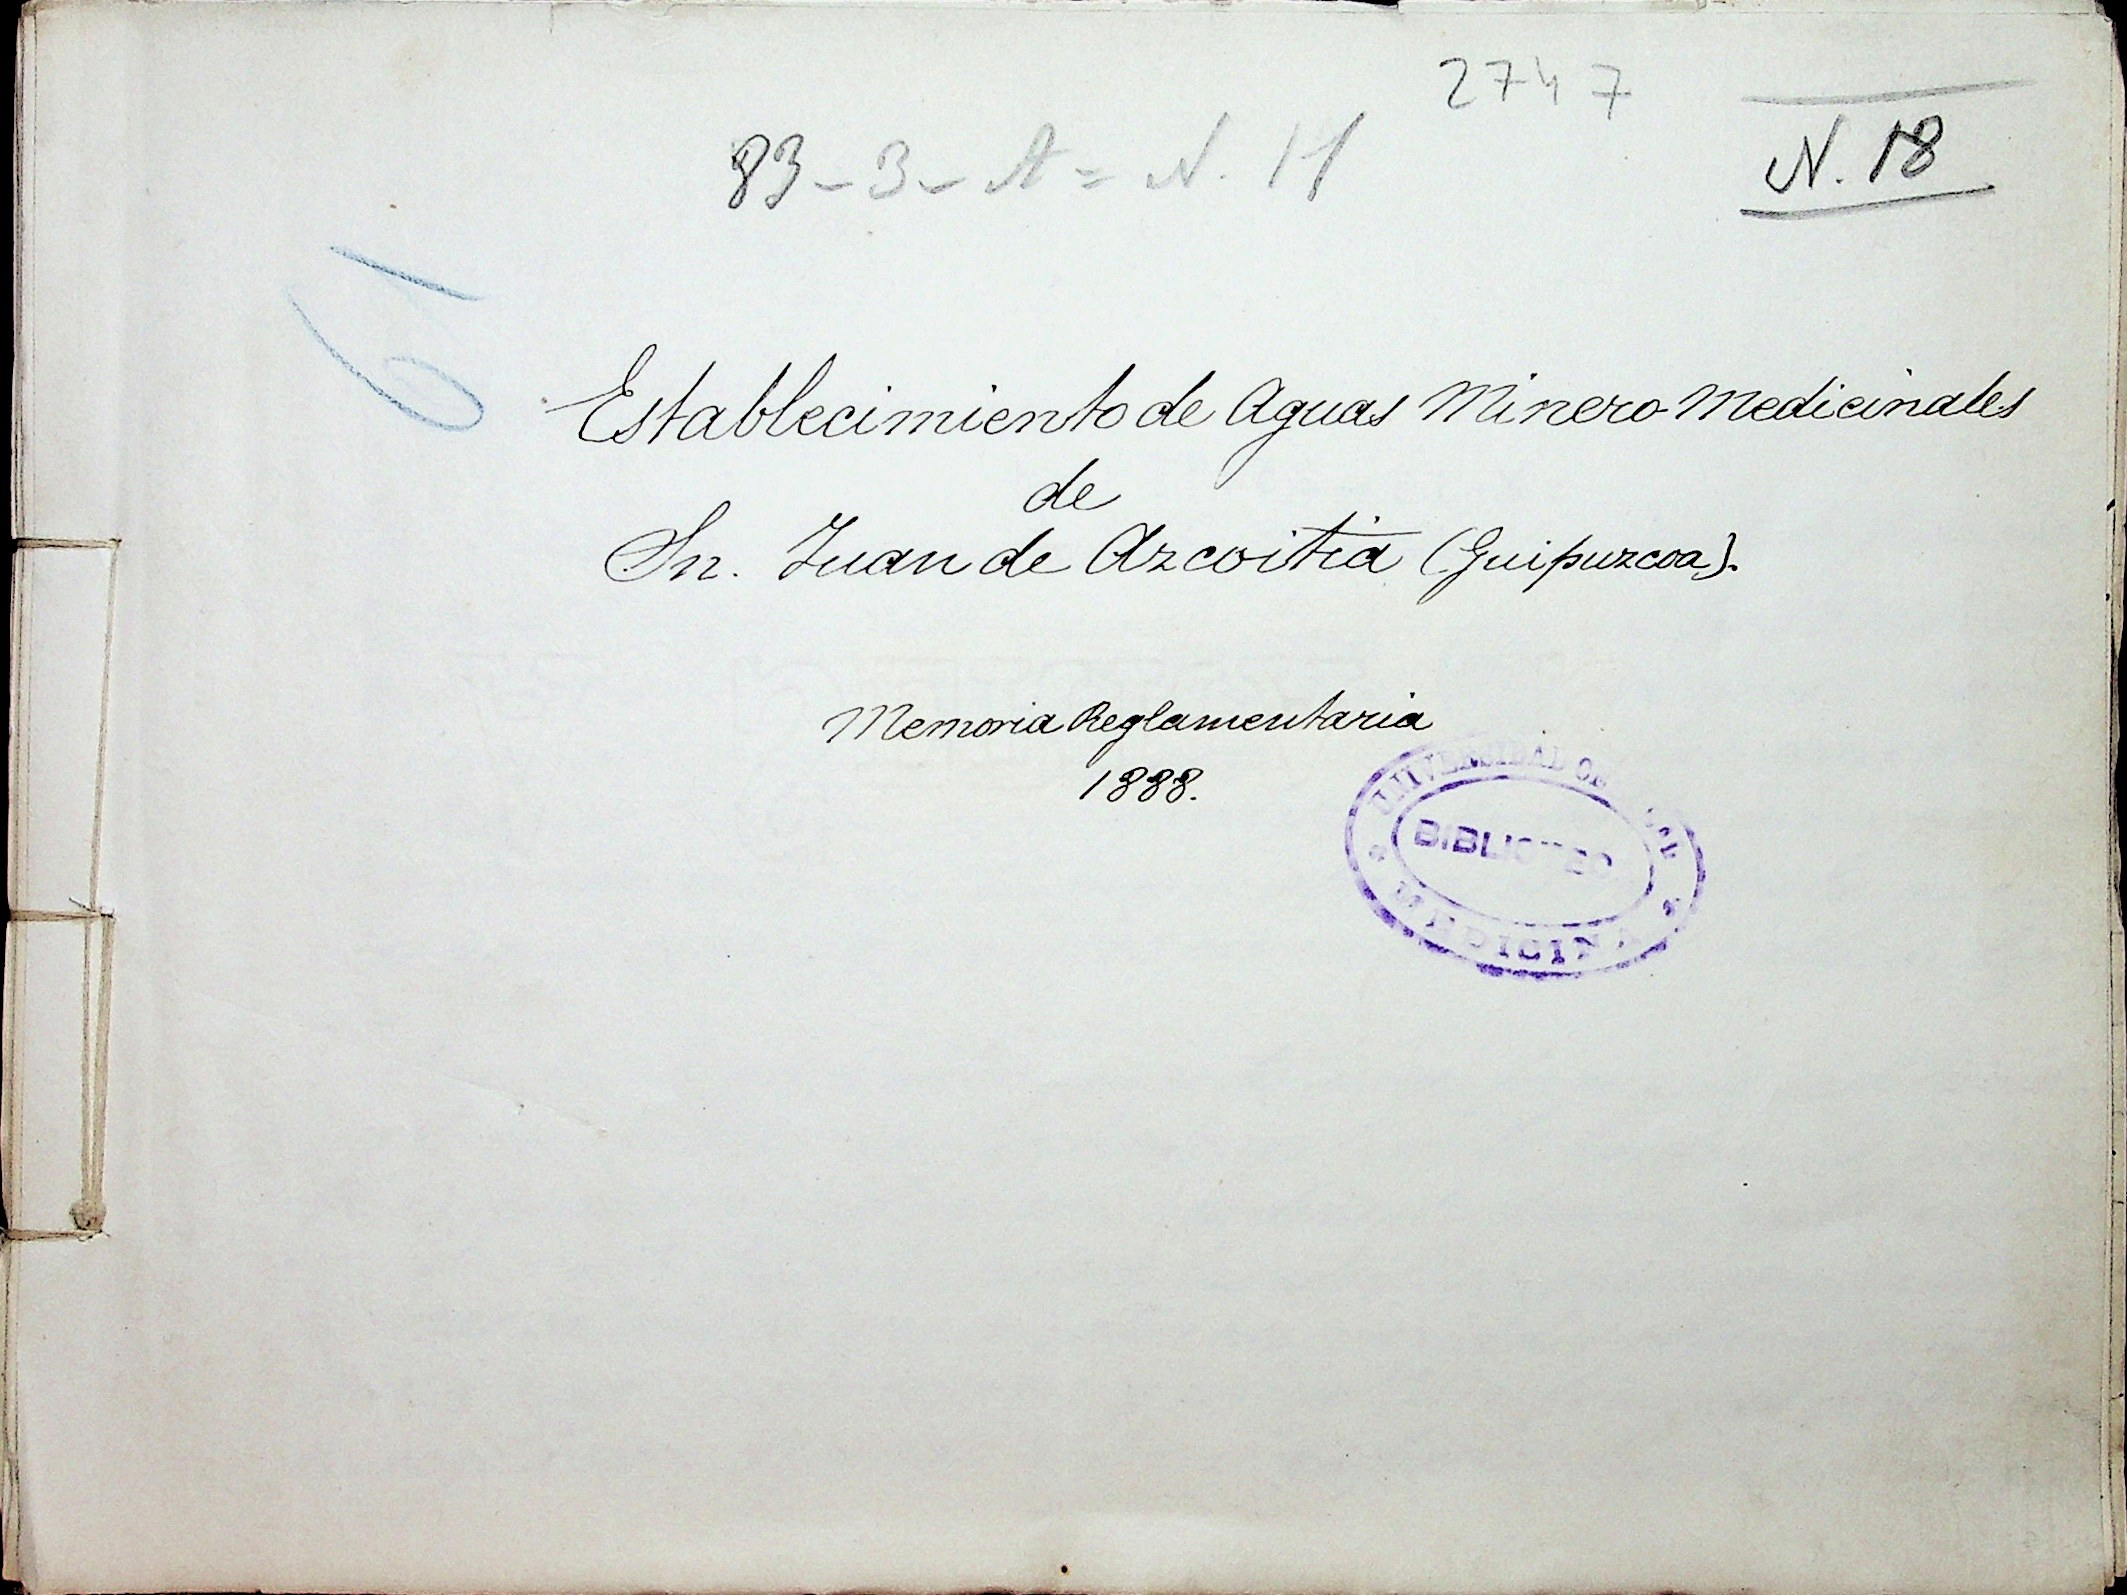 2747
N. 18
83-3-A=N. 11
61
Establecimiento de Aguas Minero Medicinales
de
Sn. Juan de Azcoitia (Guipuzcoa).
Memoria Reglamentaria
1888.
UNIVERSIDAD
MEDICINA